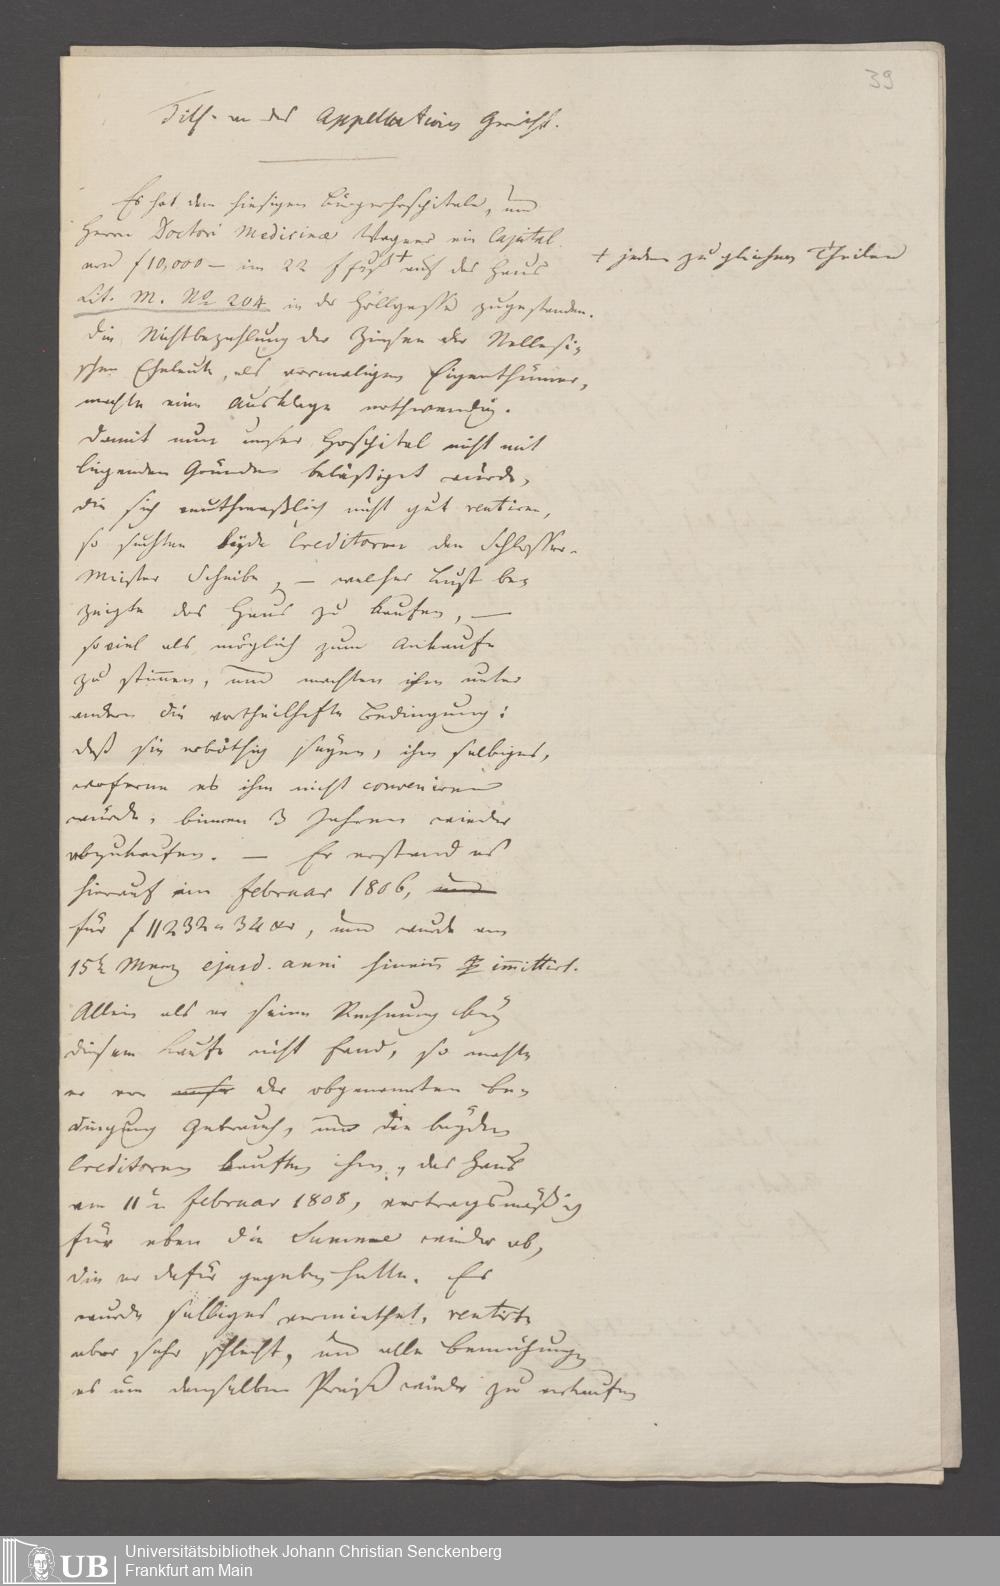 39
Tit. an das Appellations Gericht.
Es hat dem hiesigen Bürgerhospitale, und
Herrn Doctori Medicinæ Wagner ein Capital
von f 10,000 — im 22 f fuß + auf das Haus
+ jedem zu gleichen Theilen
Lit. M. No 204 in der Höllgasse zugestanden.
Die Nichtbezahlung der Zinsen der Nellesi-
schen Eheleute, als vormaligen Eigenthümer,
machte eine Ausklage nothwendig.
Damit nun unser Hospital nicht mit
liegenden Gründen belästiget würde,
die sich muthmaßlich nicht gut rentiren,
so suchten beyde Creditoren den Schlosser-
Meister Scheibe, — welcher Lust be-
zeigte das Haus zu kaufen, —
soviel als möglich zum Ankaufe
zu stimmen, und machten ihm unter
andern die vortheilhafte Bedingung:
daß sie erböthig seyen, ihm selbiges,
woferne es ihm nicht conveniren
würde, binnen 3 Jahren wieder
abzukaufen. — Er erstand es
hierauf im Februar 1806, und
für f 11232 " 34 xr, und wurde am
15t Merz ejusd. anni hierein immittirt.
Allein als er seine Rechnung bey
diesem Kaufe nicht fand, so machte
er von unser der obgenannten Be-
dingung Gebrauch, und die beyden
Creditoren kauften ihm, das Haus
am 11n Februar 1808, vertragsmäßig
für eben die Summe wieder ab,
die er dafür gegeben hatte. Es
wurde selbiges vermiethet, rentirte
aber sehr schlecht, und alle Bemühungen
es um denselben Preiß wieder zu verkaufen
UB
Universitätsbibliothek Johann Christian Senckenberg
Frankfurt am Main